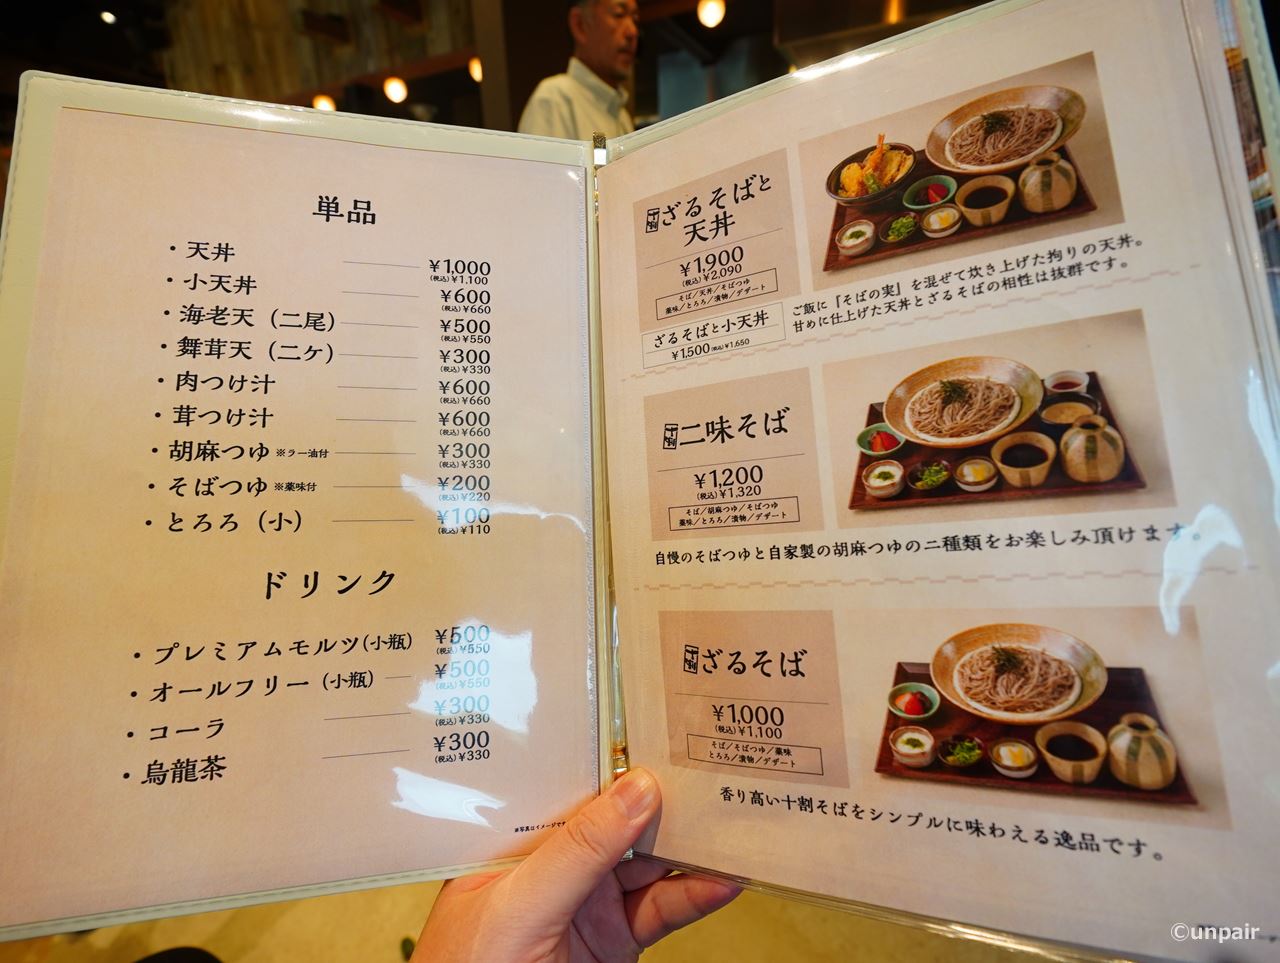 単品
・天丼 ¥1,000
(税込)¥1,100
・小天丼 ¥600
(税込)¥660
・海老天（二尾） ¥500
(税込)¥550
・舞茸天（二ケ） ¥300
(税込)¥330
・肉つけ汁 ¥600
(税込)¥660
・茸つけ汁 ¥600
(税込)¥660
・胡麻つゆ ※ラー油付 ¥300
(税込)¥330
・そばつゆ ※薬味付 ¥200
(税込)¥220
・とろろ（小） ¥100
(税込)¥110
ドリンク
・プレミアムモルツ(小瓶) ¥500
(税込)¥550
・オールフリー（小瓶） ¥500
(税込)¥550
・コーラ ¥300
(税込)¥330
・烏龍茶 ¥300
(税込)¥330
※写真はイメージです
十割ざるそばと
天丼
¥1,900
(税込)¥2,090
そば/天丼/そばつゆ
薬味/とろろ/漬物/デザート
ざるそばと小天丼
¥1,500(税込)¥1,650
ご飯に「そばの実」を混ぜて炊き上げた拘りの天丼。
甘めに仕上げた天丼とざるそばの相性は抜群です。
十割二味そば
¥1,200
(税込)¥1,320
そば/胡麻つゆ/そばつゆ
薬味/とろろ/漬物/デザート
自慢のそばつゆと自家製の胡麻つゆの二種類をお楽しみ頂けます。
十割ざるそば
¥1,000
(税込)¥1,100
そば/そばつゆ/薬味
とろろ/漬物/デザート
香り高い十割そばをシンプルに味わえる逸品です。
©unpair